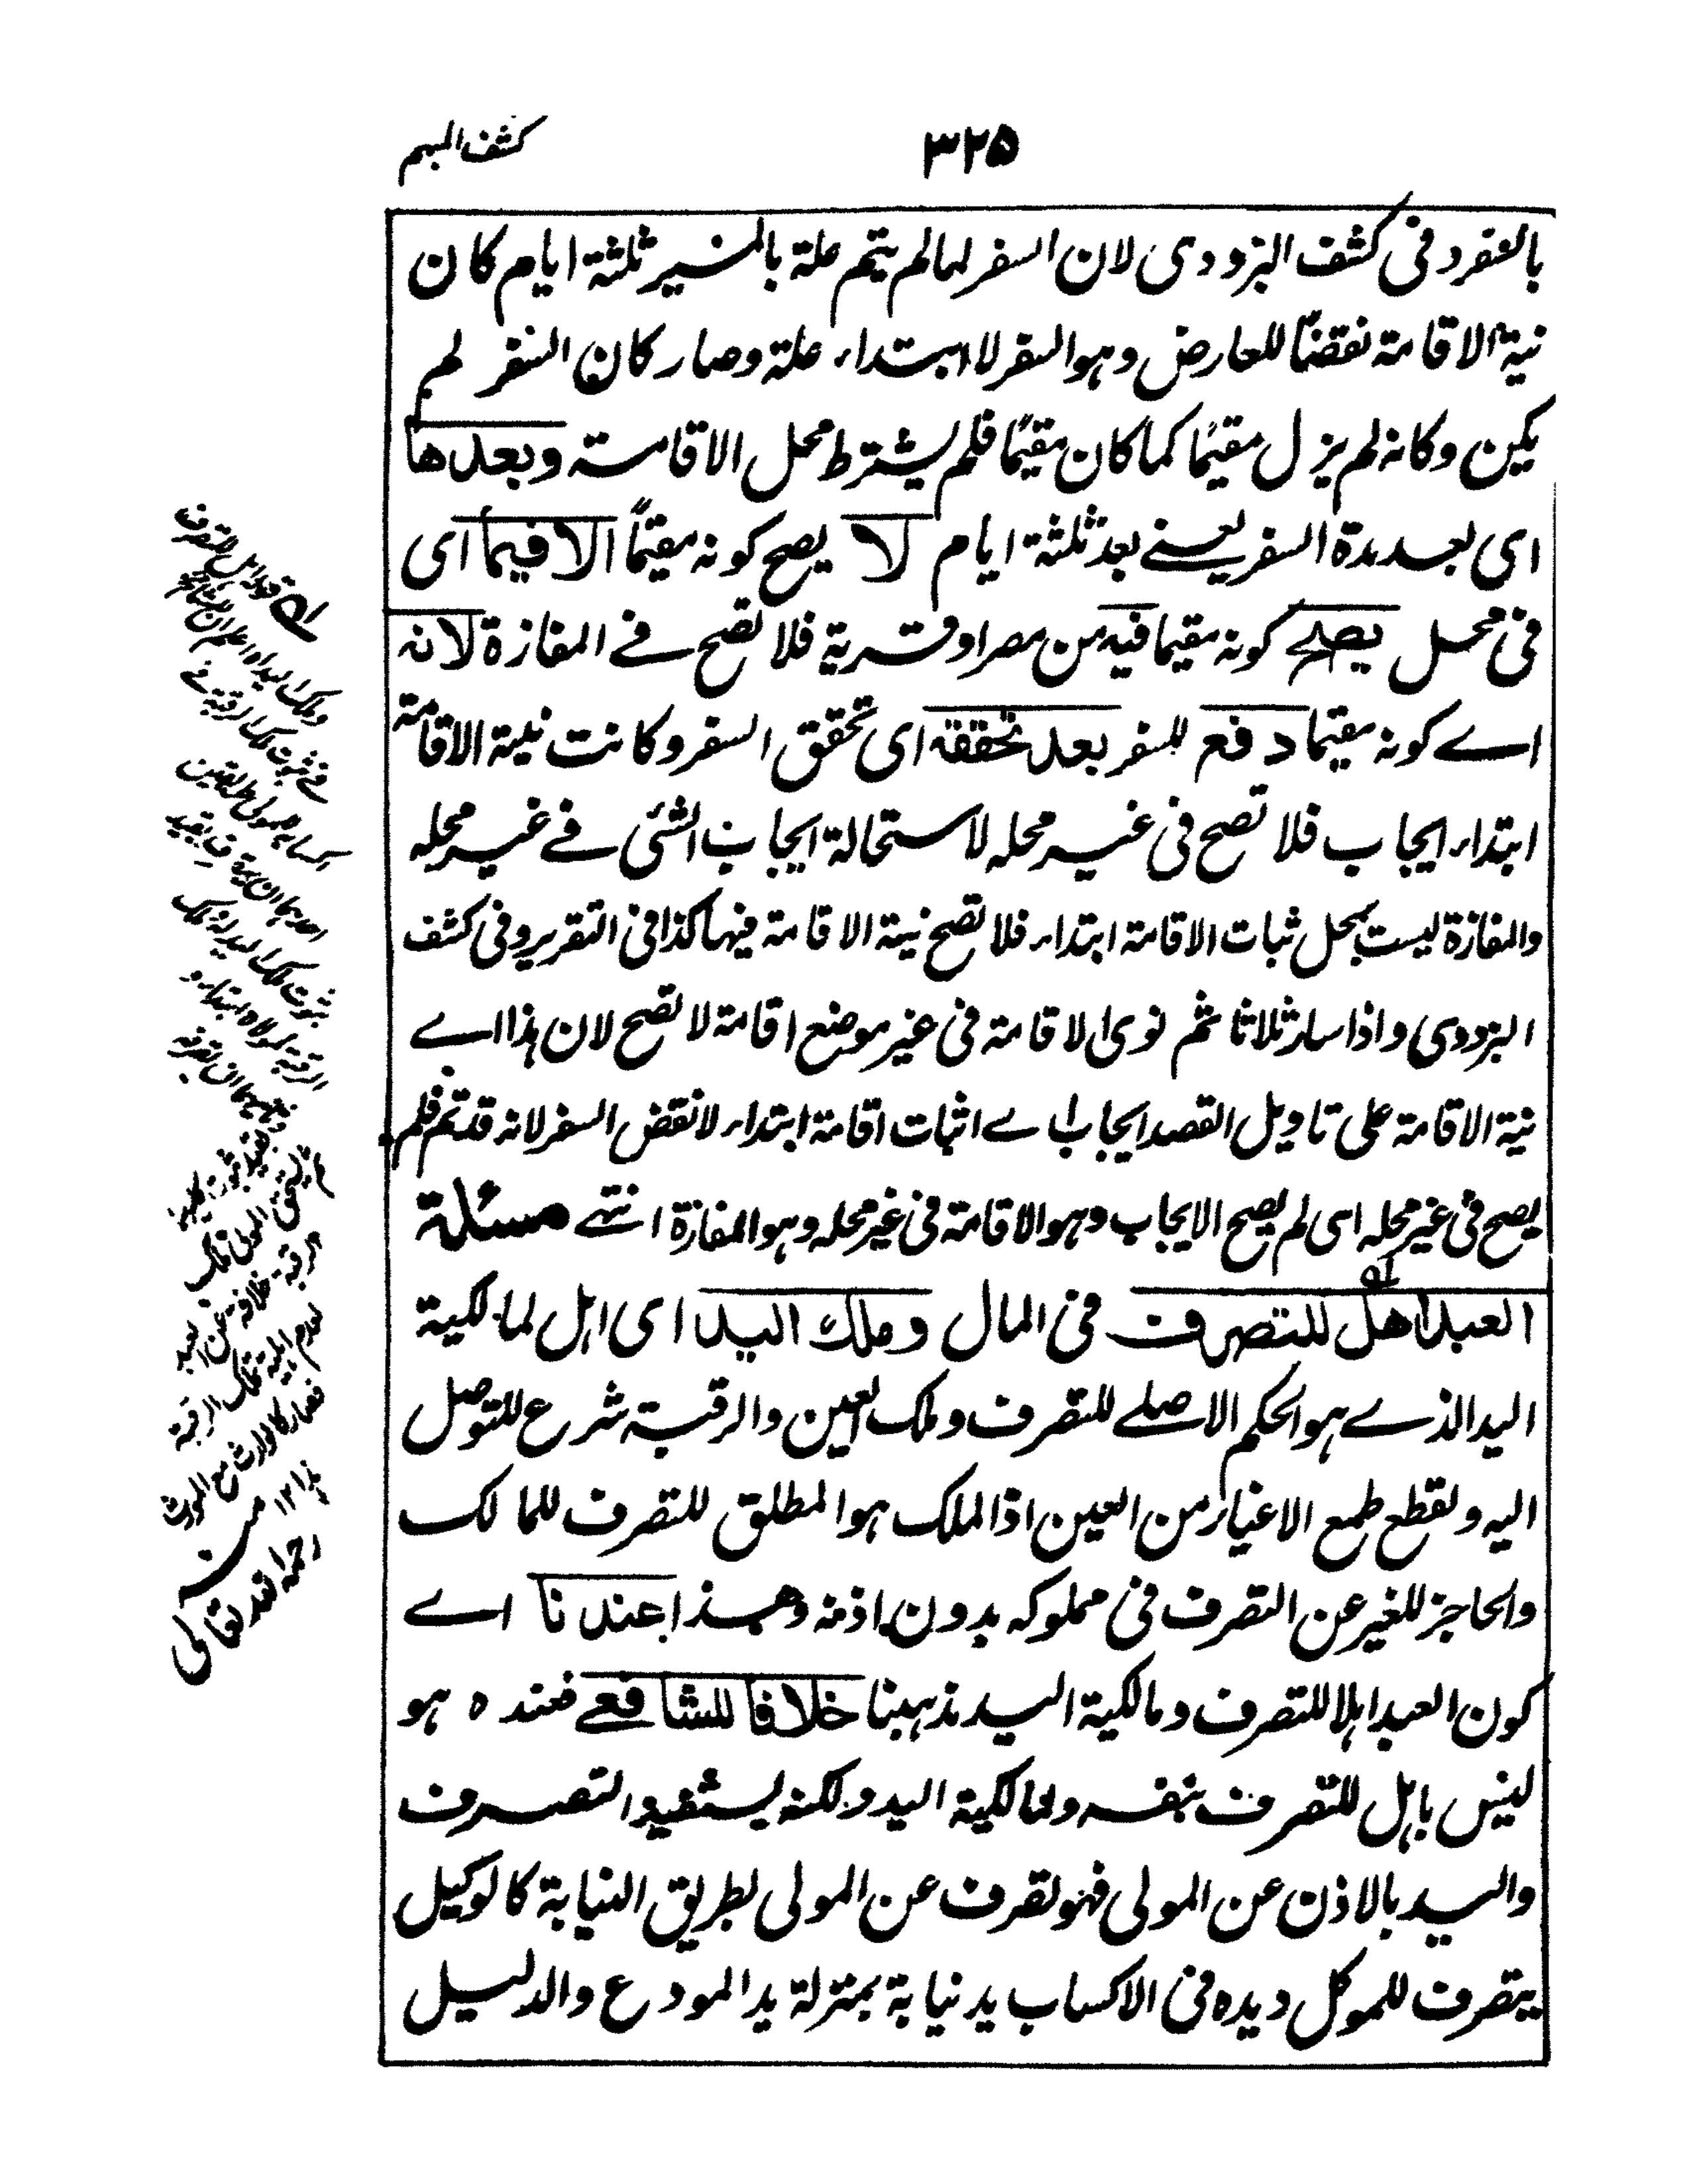 كشف المبهم
٣٢٥
بالعقرد فى كشف البزودى لان السفر لما لم يتم علة بالسير ثلثة ايام كان
نية الاقامة نقضًا للعارض وهو السفر لا ابتداء علة وصار كان السفر لم
يكن وكانه لم يزل مقيمًا كما كان مقيمًا فلم يشترط محل الاقامة وبعدها
اى بعد مدة السفر يعنے بعد ثلثة ايام لا يصح كونه مقيمًا الا فيما اى
فى محل يصلح كونه مقيما فيه من مصر او قرية فلا تصح فے المفازة لانه
اے كونه مقيما دفع للسفر بعد تحققه اى تحقق السفر وكانت نية الاقامة
ابتداء ايجاب فلا تصح فى غير محله لاستحالة ايجاب الشئ فے غير محله
والمفازة ليست بمحل ثبات الاقامة ابتداء فلا تصح نية الاقامة فيها كذا فى التقرير وفى كشف
البزدوى واذا سار ثلاثا ثم نوى الاقامة فى غير موضع اقامة لا تصح لان هذا اے
نية الاقامة على تاويل القصد ايجاب اے اثبات اقامة ابتداء لا نقض السفر لانه قد تم فلم
يصح فى غير محله اى لم يصح الايجاب وهو الاقامة فى غير محله وهو المفازة انتهے مسئلة
العبد اهل للتصرف فى المال وملك اليد اى اهل لمالكية
اليد الذے هو الحكم الاصلے للتصرف وملك العين والرقبة شرع للتوصل
اليه ولقطع طمع الاغيار من العين اذ الملك هو المطلق للتصرف للمالك
والحاجز للغير عن التصرف فى مملوكه بدون اذنه وهذا عندنا اے
كون العبد اهلا للتصرف ومالكية اليد مذهبنا خلافا للشافعے فعنده هو
ليس باهل للتصرف بنفسه ولمالكية اليد ولكنه يستفيد التصرف
واليد بالاذن عن المولى فهو تصرف عن المولى بطريق النيابة كالوكيل
يتصرف للموكل ويده فى الاكساب يد نيابة بمنزلة يد المودع والدليل
قوله اهل للتصرف
وملك اليد اه اعلم ان
فے ثبوت ملك الرقبة فے
اكسابه للمولى طريقين
احدهما ان
ثبوت ملك اليد له وملك
الرقبة لمولاه ابتداء و
ثانيهما ان تصرفه
يفيد ثبوت
ثم يستحق المولى ملك
الرقبة خلافة عن العبد
لعدم اهلية ملك الرقبة
فصار كالوارث مع المورث
هذا ١٢ منه
رحمه الله تعالى